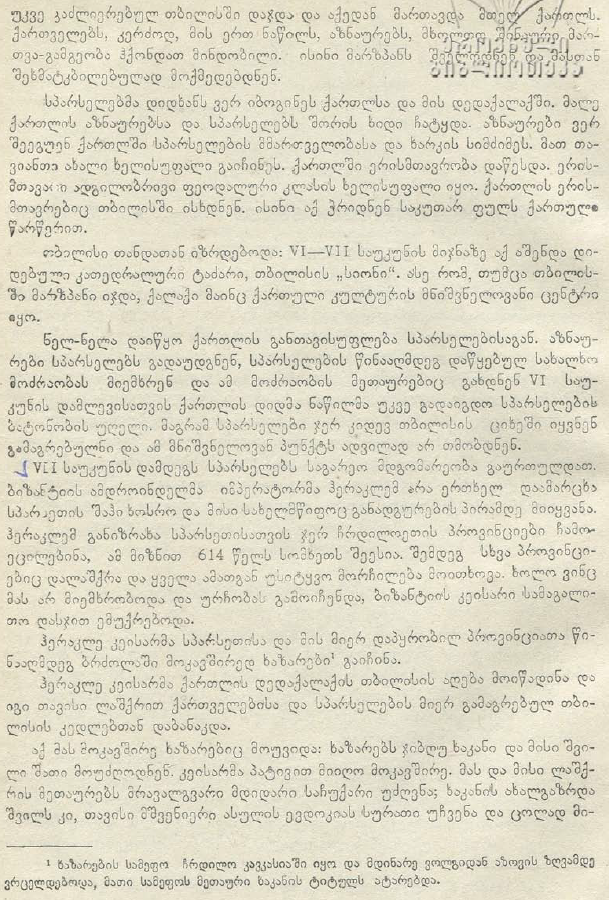 უკვე გაძლიერებულ თბილისში დაჯდა და აქედან მართავდა მთელ ქართლს.
ქართველებს, კერძოდ, მის ერთ ნაწილს, აზნაურებს, მხოლოდ შინაური მარ-
თვა-გამგეობა ჰქონდათ მინდობილი. ისინი მარზპანს და მასთან
შეხმატკბილებულად მოქმედებდნენ.
სპარსელებმა დიდხანს ვერ იბოგინეს ქართლსა და მის დედაქალაქში. მალე
ქართლის აზნაურებსა და სპარსელებს შორის ხიდი ჩატყდა. აზნაურები ვერ
შეეგუენ ქართლში სპარსელების მმართველობასა და ხარკის სიმძიმეს. მათ თა-
ვიანთი ახალი ხელისუფალი გაიჩინეს. ქართლში ერისმთავრობა დაწესდა. ერის-
მთავარი ადგილობრივი ფეოდალური კლასის ხელისუფალი იყო. ქართლის ერის-
მთავრებიც თბილისში ისხდნენ. ისინი აქ ჰრიდნენ საკუთარ ფულს ქართული
წარწერით.
თბილისი თანდათან იზრდებოდა: VI—VII საუკუნის მიჯნაზე აქ აშენდა დი-
დებული კათედრალური ტაძარი, თბილისის „სიონი“. ასე რომ, თუმცა თბილის-
ში მარზპანი იჯდა, ქალაქი მაინც ქართული კულტურის მნიშვნელოვანი ცენტრი
იყო.
ნელ-ნელა დაიწყო ქართლის განთავისუფლება სპარსელებისაგან. აზნაუ-
რები სპარსელებს გადაუდგნენ, სპარსელების წინააღმდეგ დაწყებულ სახალხო
მოძრაობას მიემხრნენ და ამ მოძრაობის მეთაურებიც გახდნენ VI საუ-
კუნის დამლევისათვის ქართლის დიდმა ნაწილმა უკვე გადაიგდო სპარსელების
ბატონობის უღელი. მაგრამ სპარსელები ჯერ კიდევ თბილისის ციხეში იყვნენ
გამაგრებულნი და ამ მნიშვნელოვან პუნქტს ადვილად არ თმობდნენ.
VII საუკუნის დამდეგს სპარსელებს საგარეო მდგომარეობა გაურთულდათ.
ბიზანტიის ამდროინდელმა იმპერატორმა ჰერაკლემ არა ერთხელ დაამარცხა
სპარსეთის შაჰი ხოსრო და მისი სახელმწიფოც განადგურების პირამდე მიიყვანა.
ჰერაკლემ განიზრახა სპარსეთისათვის ჯერ ჩრდილოეთის პროვინციები ჩამო-
ეცილებინა, ამ მიზნით 614 წელს სომხეთს შეესია. შემდეგ სხვა პროვინცი-
ებიც დალაშქრა და ყველა ამათგან უსიტყვო მორჩილება მოითხოვა. ხოლო ვინც
მას არ მიემხრობოდა და ურჩობას გამოიჩენდა, ბიზანტიის კეისარი სამაგალი-
თო დასჯით ემუქრებოდა.
ჰერაკლე კეისარმა სპარსეთისა და მის მიერ დაპყრობილ პროვინციათა წი-
ნააღმდეგ ბრძოლაში მოკავშირედ ხაზარები¹ გაიჩინა.
ჰერაკლე კეისარმა ქართლის დედაქალაქის თბილისის აღება მოიწადინა და
იგი თავისი ლაშქრით ქართველებისა და სპარსელების მიერ გამაგრებულ თბი-
ლისის კედლებთან დაბანაკდა.
აქ მას მოკავშირე ხაზარებიც მოუვიდა: ხაზარებს ჯიბღუ ხაკანი და მისი შვი-
ლი შათი მოუძღოდნენ. კეისარმა პატივით მიიღო მოკავშირე. მას და მისი ლაშქ-
რის მეთაურებს მრავალგვარი მდიდარი საჩუქარი უძღვნა; ხაკანის ახალგაზრდა
შვილს კი, თავისი მშვენიერი ასულის ევდოკიას სურათი უჩვენა და ცოლად მი-
¹ ხაზარების სამეფო ჩრდილო კავკასიაში იყო და მდინარე ვოლგიდან აზოვის ზღვამდე
ვრცელდებოდა, მათი სამეფოს მეთაური ხაკანის ტიტულს ატარებდა.